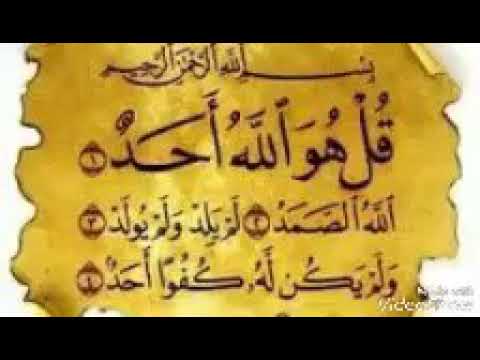 بِسْمِ اللَّهِ الرَّحْمَٰنِ الرَّحِيمِ
قُلْ هُوَ ٱللَّهُ أَحَدٌ ١
ٱللَّهُ ٱلصَّمَدُ ٢ لَمْ يَلِدْ وَلَمْ يُولَدْ ٣
وَلَمْ يَكُن لَّهُۥ كُفُوًا أَحَدٌۢ ٤
Made with
VideoShow